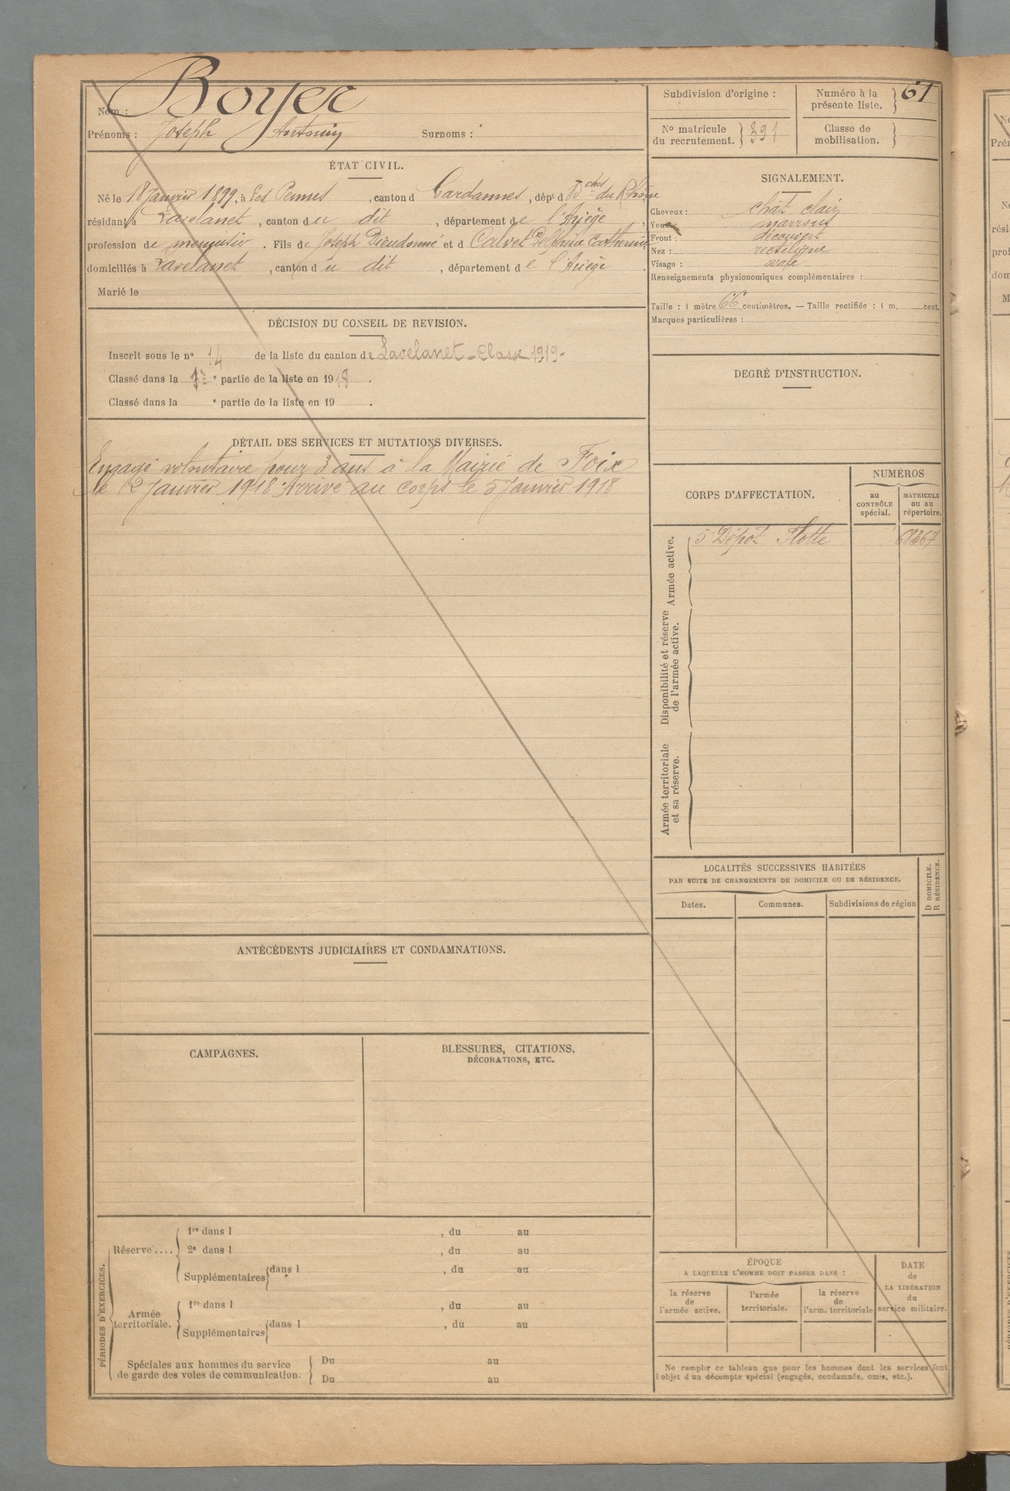 Nom : Boyer
Prénoms : Joseph Antonin Surnoms :
Subdivision d'origine :
Numéro à la présente liste. } 61
No matricule du recrutement. } 391
Classe de mobilisation. }
ÉTAT CIVIL.
Né le 18 Janvier 1899, à Les Pennes, canton d Gardannes, dépt d Bches du Rhône
résidant à Lavelanet, canton du dit, département de l'Ariège
profession de menuisier. Fils de Joseph Dieudonné et d Calvet Delphine Catherine
domiciliés à Lavelanet, canton du dit, département de l'Ariège.
Marié le
DÉCISION DU CONSEIL DE REVISION.
Inscrit sous le no 14 de la liste du canton de Lavelanet - Classe 1919.
Classé dans la e partie de la liste en 1918.
Classé dans la e partie de la liste en 19 .
DÉTAIL DES SERVICES ET MUTATIONS DIVERSES.
Engagé volontaire pour 3 ans à la Mairie de Foix
le 2 Janvier 1918. Arrivé au corps le 5 Janvier 1918
ANTÉCÉDENTS JUDICIAIRES ET CONDAMNATIONS.
CAMPAGNES.
BLESSURES, CITATIONS,
DÉCORATIONS, ETC.
PÉRIODES D'EXERCICES.
Réserve....
1re dans l , du au
2e dans l , du au
Supplémentaires dans l , du au
Armée territoriale.
1re dans l , du au
Supplémentaires dans l , du au
Spéciales aux hommes du service
de garde des voies de communication.
Du au
Du au
SIGNALEMENT.
Cheveux : chât clair
Yeux marrons
Front : découvert
Nez : rectiligne
Visage : ovale
Renseignements physionomiques complémentaires :
Taille : 1 mètre 66 centimètres. — Taille rectifiée : 1 m. cent.
Marques particulières :
DEGRÉ D'INSTRUCTION.
CORPS D'AFFECTATION.
NUMÉROS
au CONTRÔLE spécial.
MATRICULE ou au répertoire.
Armée active.
5 Dépôt Flotte
Disponibilité et réserve
de l'armée active.
Armée territoriale
et sa réserve.
LOCALITÉS SUCCESSIVES HABITÉES
PAR SUITE DE CHANGEMENTS DE DOMICILE OU DE RÉSIDENCE.
D DOMICILE.
R RÉSIDENCE.
Dates.
Communes.
Subdivisions de région
ÉPOQUE
A LAQUELLE L'HOMME DOIT PASSER DANS :
la réserve de l'armée active.
l'armée territoriale.
la réserve de l'arm. territoriale
DATE
de
LA LIBÉRATION
du
service militaire.
Ne remplir ce tableau que pour les hommes dont les services font
l'objet d'un décompte spécial (engagés, condamnés, omis, etc.).